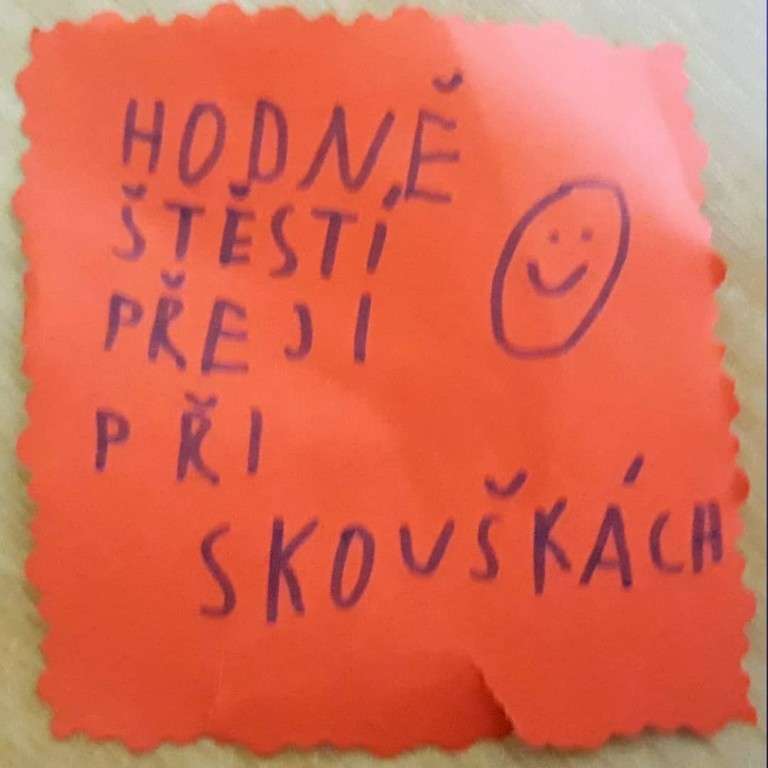 HODNĚ
ŠTĚSTÍ
PŘEJI
PŘI
SKOUŠKÁCH